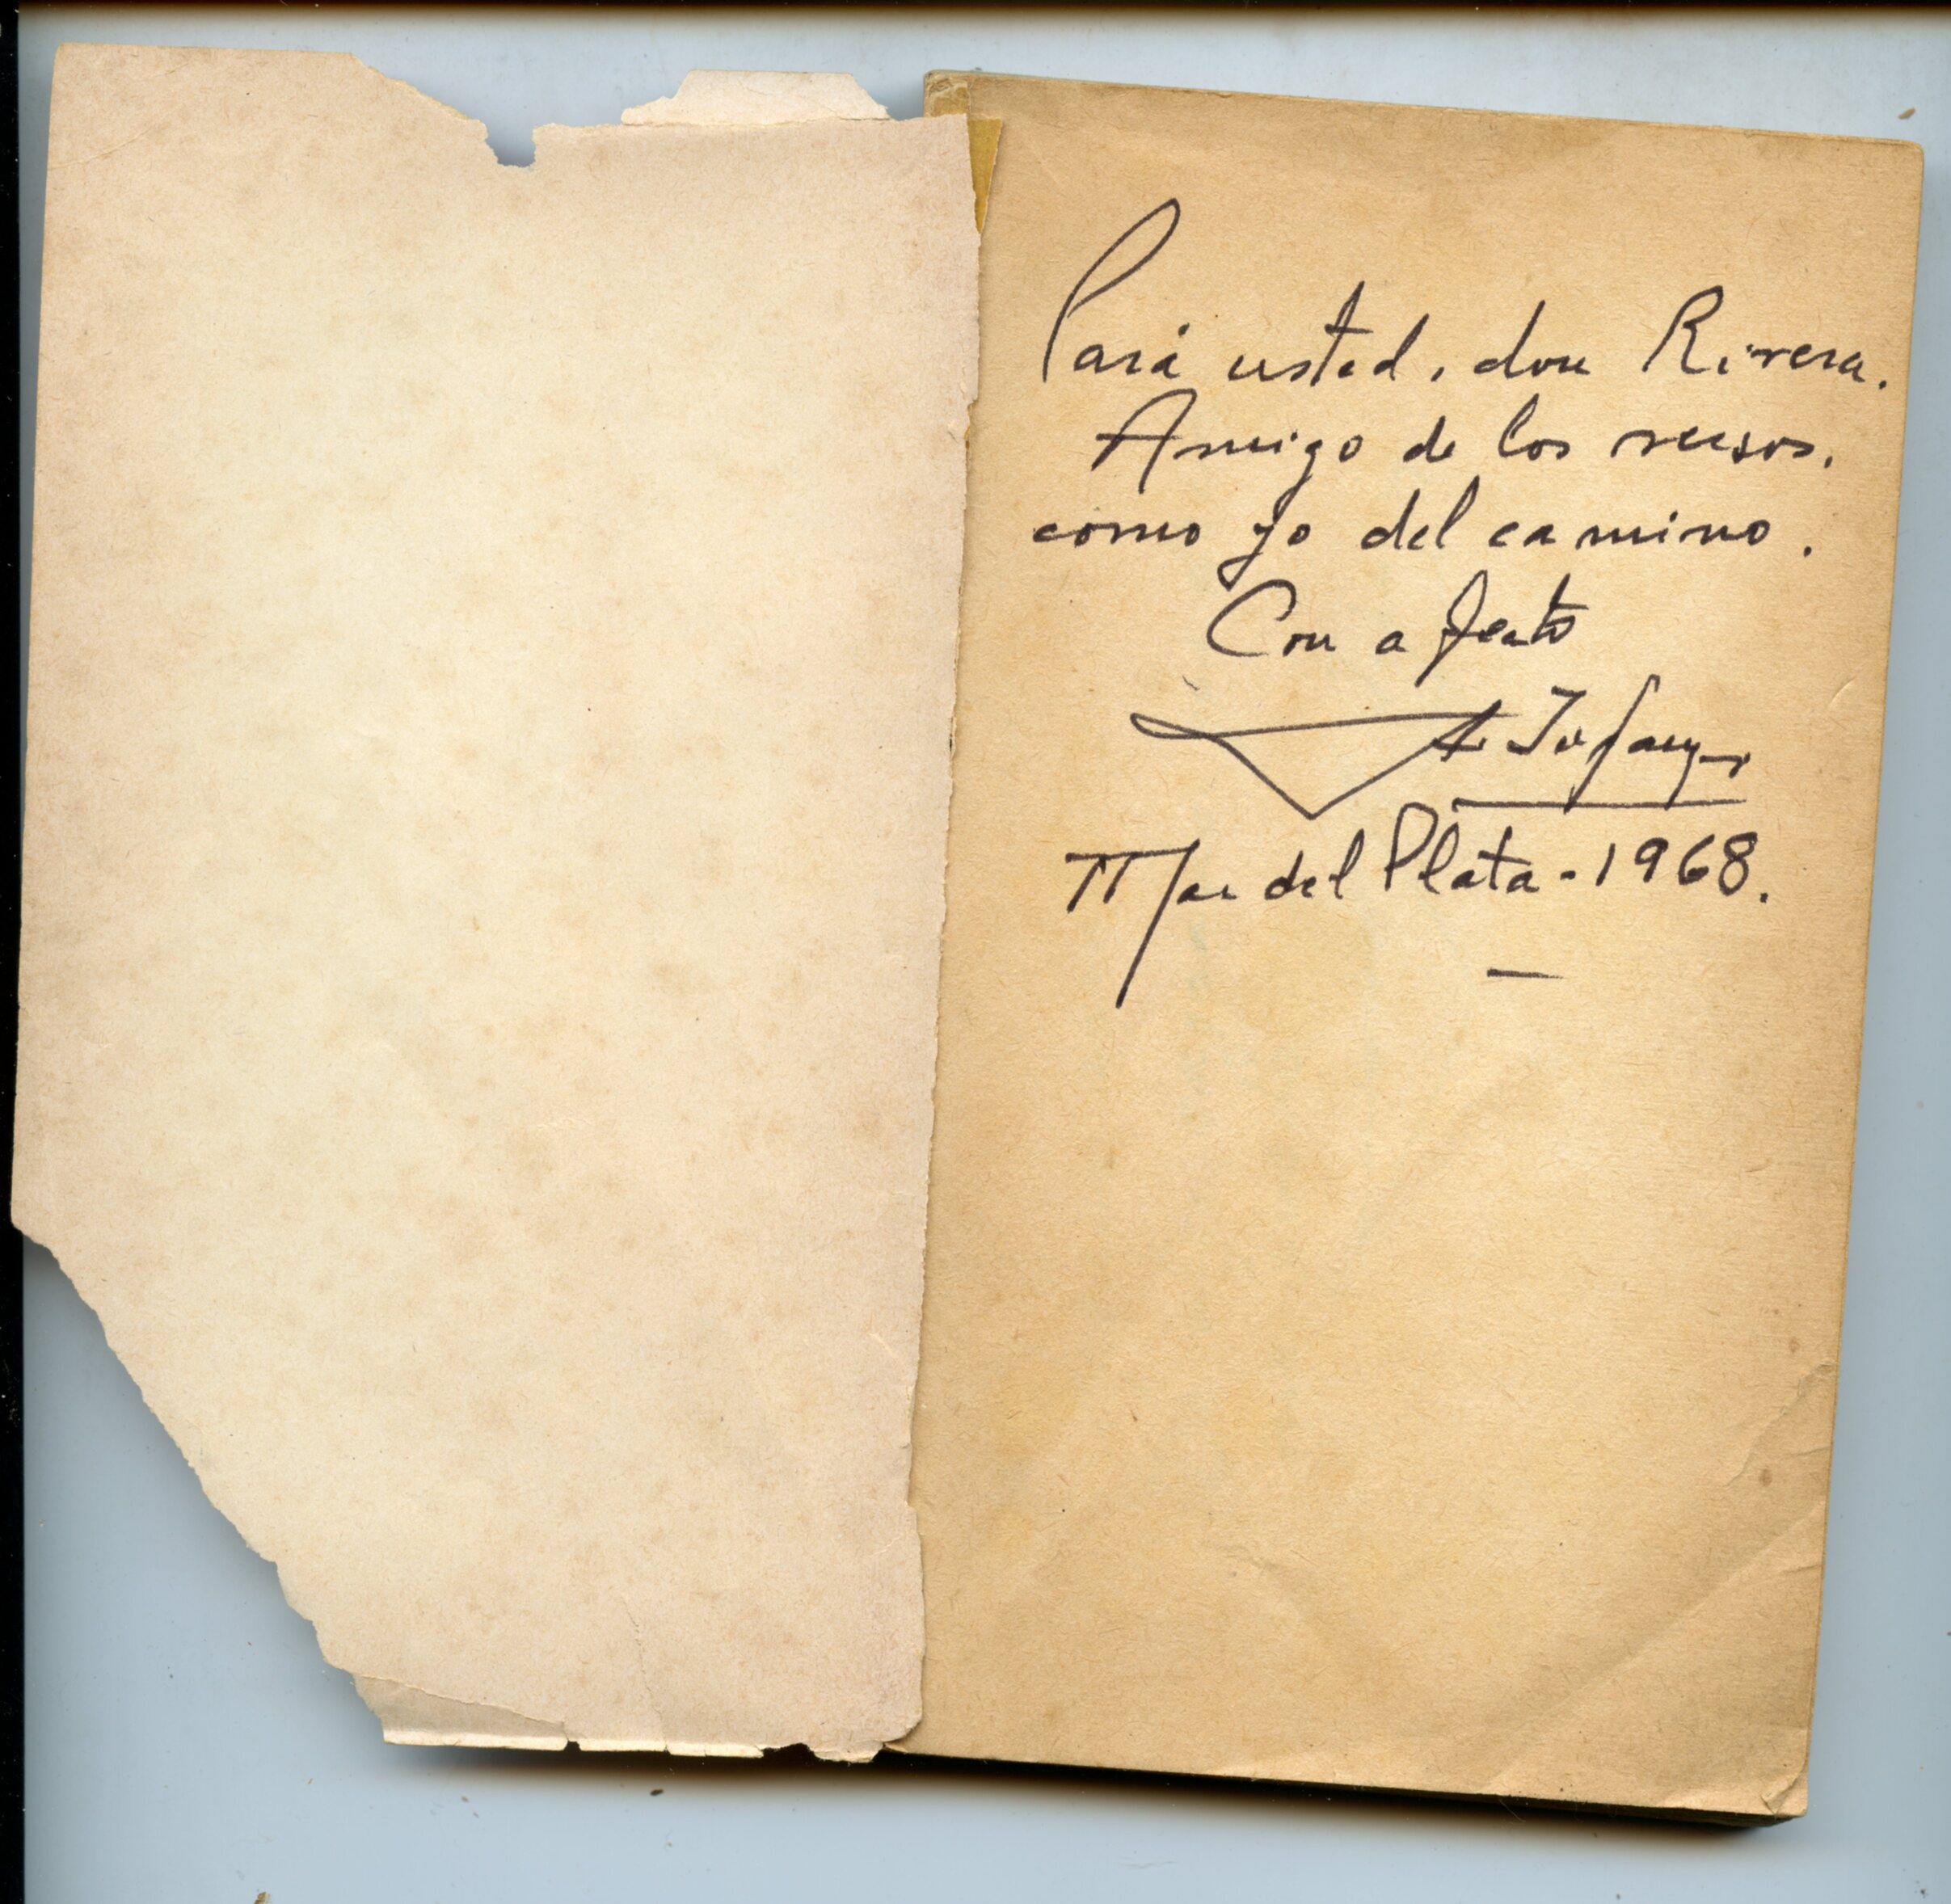 Para usted, don Rivera.
Amigo de los versos,
como yo del camino.
Con afecto
A. Yupanqui
Mar del Plata - 1968.